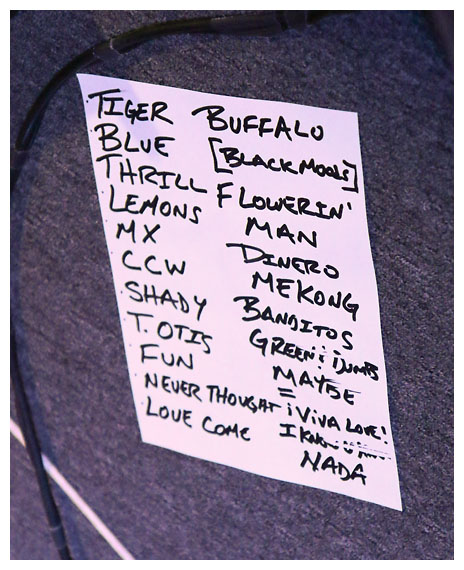 TIGER
BLUE
THRILL
LEMONS
MX
CCW
SHADY
T. OTIS
FUN
NEVER THOUGHT
LOVE COME
BUFFALO
[BLACK MOODS]
FLOWERIN'
MAN
DINERO
MEKONG
BANDITOS
GREEN & DUMB
MAYBE
=
¡VIVA LOVE!
I KNOW
NADA